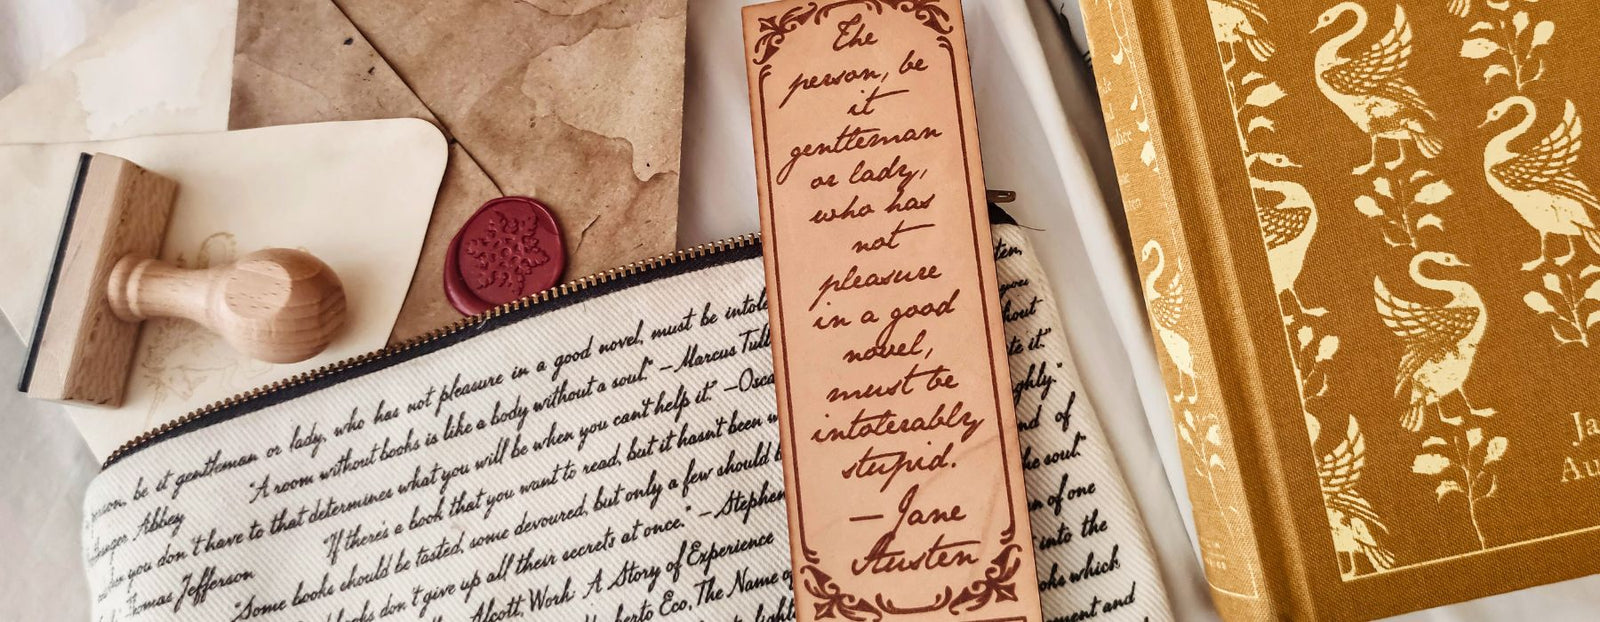 The
person, be
it
gentleman
or lady,
who has
not
pleasure
in a good
novel,
must be
intolerably
stupid.
—Jane
Austen
be it gentleman or lady, who has not pleasure in a good novel, must be
Abbey "A room without books is like a body without a soul." —Marcus
you don't have to that determines what you will be when you can't help it." —
Jefferson "If there's a book that you want to read, but it hasn't been
"Some books should be tasted, some devoured, but only a few should
books don't give up all their secrets at once." — Stephen
Alcott, Work: A Story of Experience
Eco, The Name of
it."
of
soul."
of one
into the
which
and